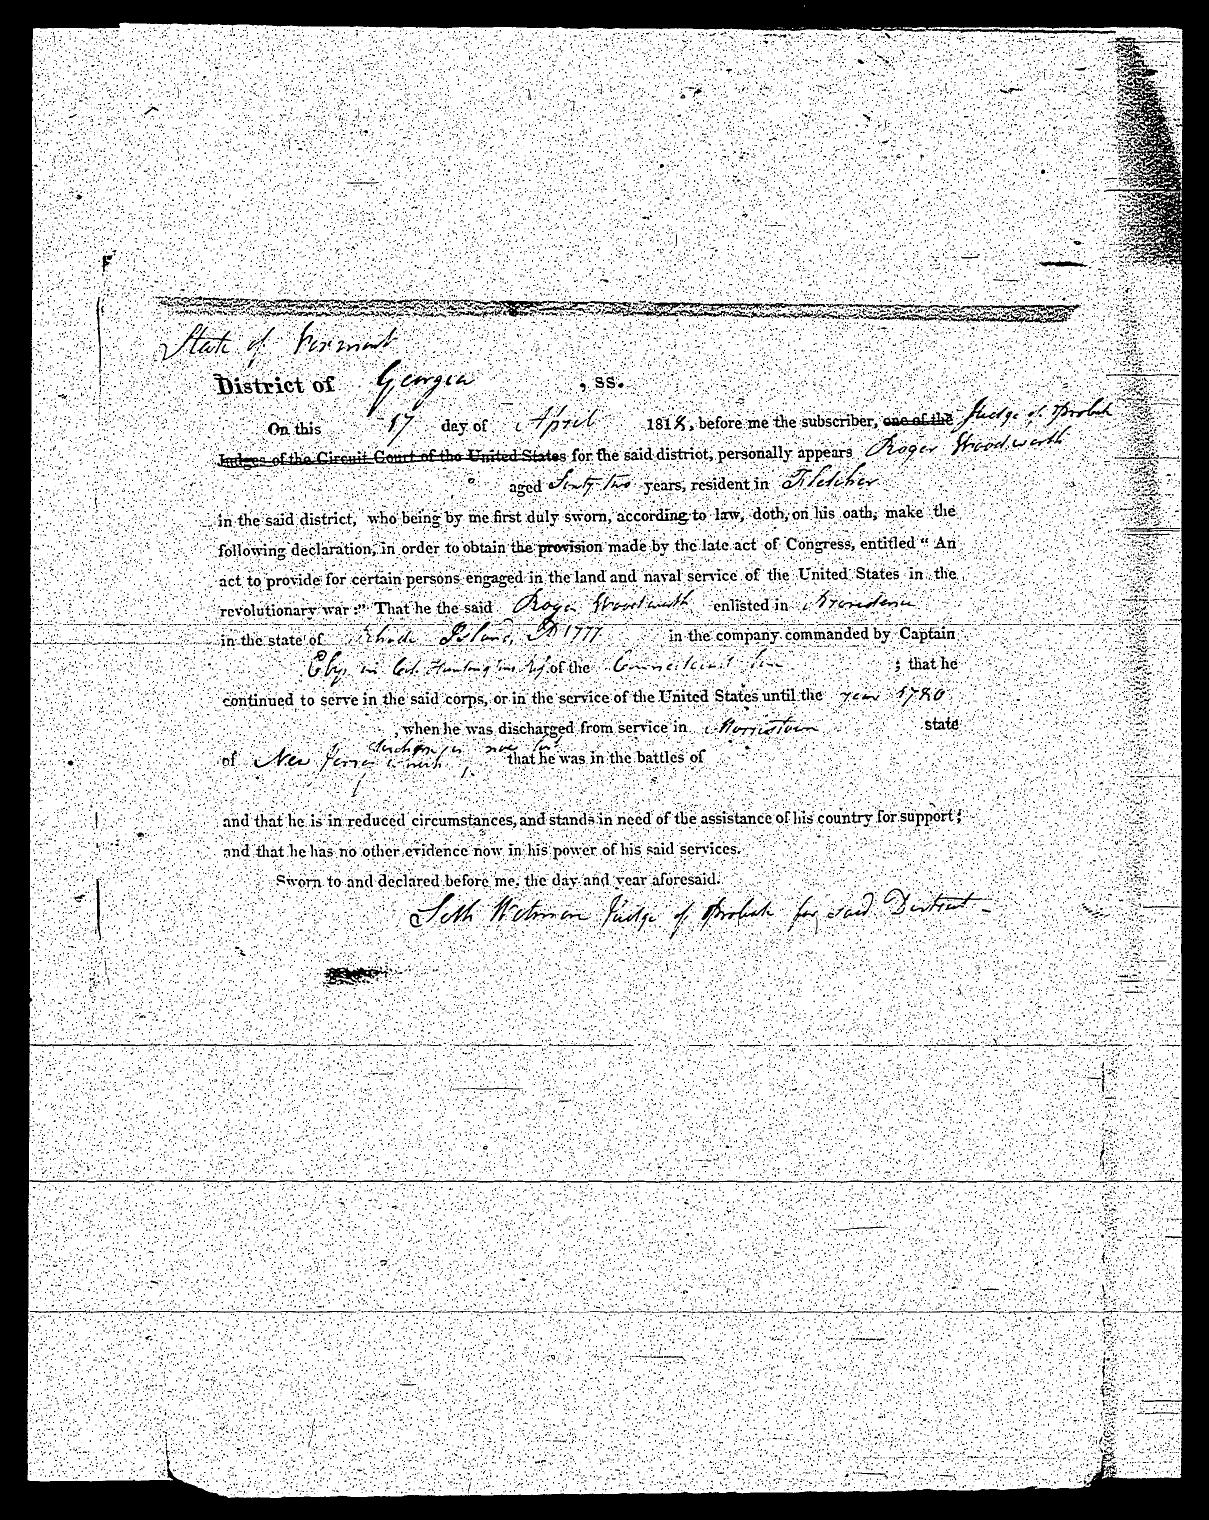 State of Vermont
District of Georgia , ss.
On this 17 day of April 1818, before me the subscriber, one of the Judge of Probate
Judges of the Circuit Court of the United States for the said district, personally appears Roger Woodworth
aged Sixty two years, resident in Fletcher
in the said district, who being by me first duly sworn, according to law, doth, on his oath, make the
following declaration, in order to obtain the provision made by the late act of Congress, entitled "An
act to provide for certain persons engaged in the land and naval service of the United States in the
revolutionary war:" That he the said Roger Woodworth enlisted in Providence
in the state of Rhode Island, 1777 in the company commanded by Captain
in Col. of the Connecticut line ; that he
continued to serve in the said corps, or in the service of the United States until the year 1780
, when he was discharged from service in Morristown state
of New Jersey which that he was in the battles of
and that he is in reduced circumstances, and stands in need of the assistance of his country for support;
and that he has no other evidence now in his power of his said services.
Sworn to and declared before me, the day and year aforesaid.
Seth Wetmore Judge of Probate for said District